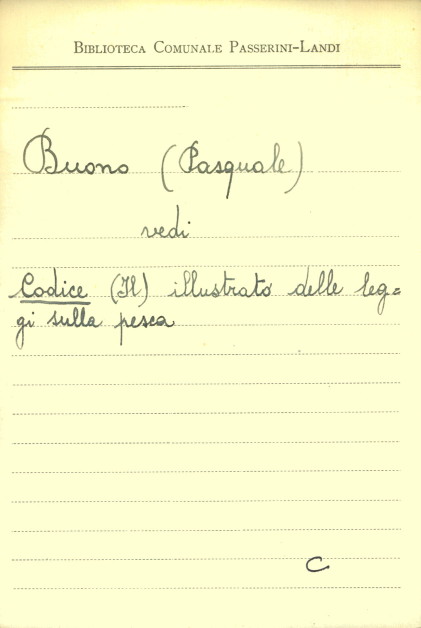 BIBLIOTECA COMUNALE PASSERINI-LANDI
Buono (Pasquale)
vedi
Codice (Il) illustrato delle leg=
gi sulla pesca
C